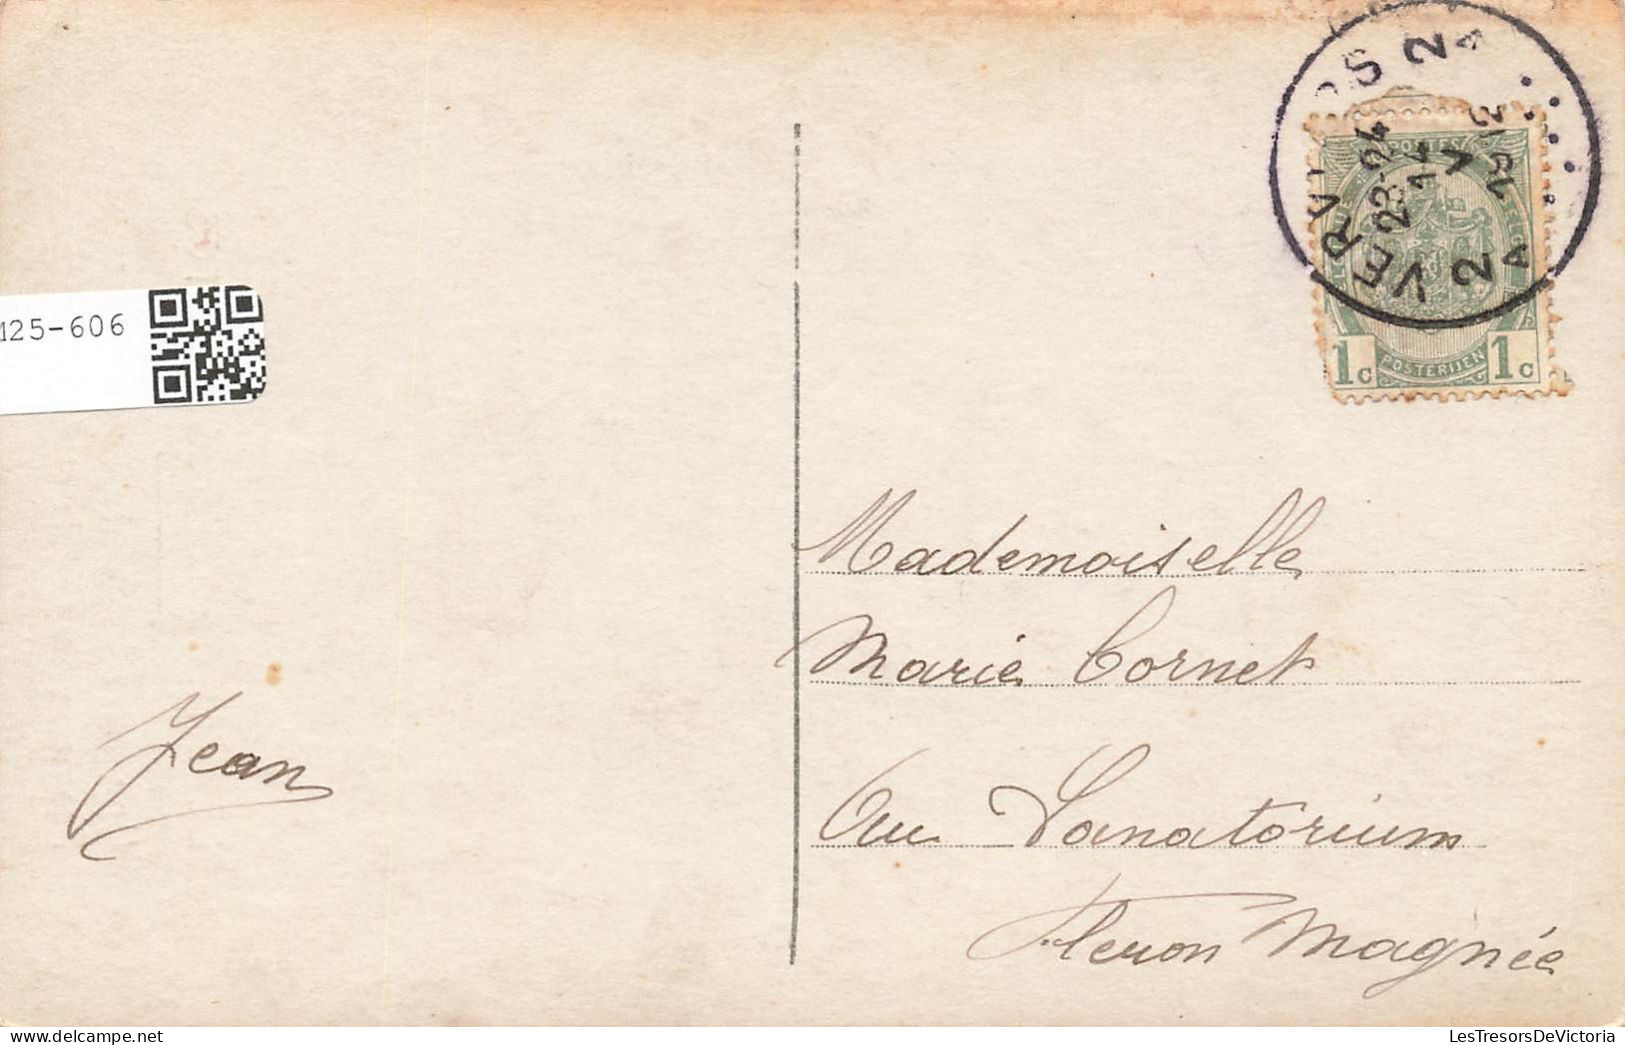 125-606
VERVIERS 2
2A
23-24
14
V
1912
2A
POSTES
1c
POSTERIJEN
1c
Mademoiselle
Marie Cornet
Au Sanatorium
Fleron Magnée
Jean
LesTresorsDeVictoria